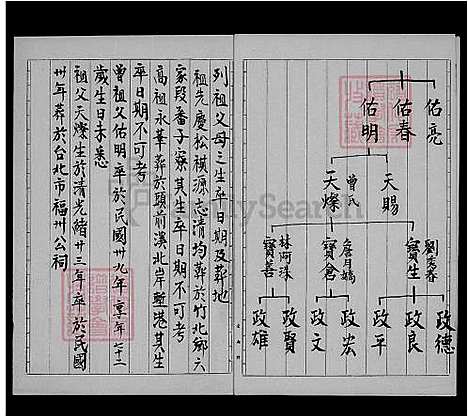 佑亮
佑春
佑明
天賜
曾氏
天燦
劉
寶生
詹月嬌
寶倉
林阿珠
寶善
政德
政良
政平
政宏
政文
政賢
政雄
列祖父母之生卒日期及葬地
祖先慶松祺源志清均葬於竹北鄉六
家段番子寮其生卒日期不可考
高祖永華葬於頭前溪北岸塹港其生
卒日期不可考
曾祖父佑明卒於民國卅九年享年七十二
歲生日未悉
祖父天燦生於清光緒廿三年卒於民國
卅年葬於台北市福州公祠
MySearch